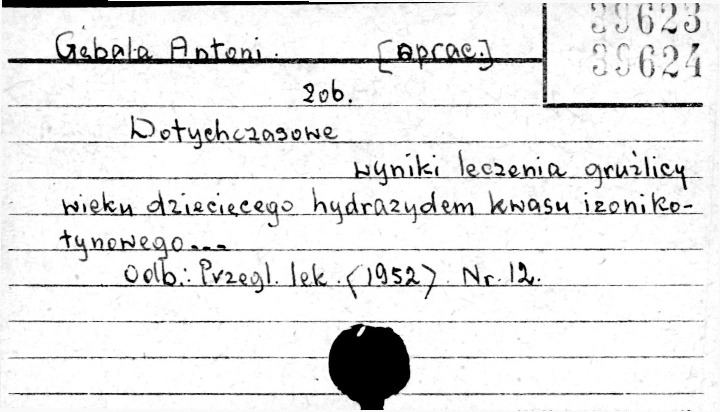 39623
Gębala Antoni. [oprac.]
39624
zob.
Dotychczasowe
wyniki leczenia gruźlicy
wieku dziecięcego hydrazydem kwasu izoniko-
tynowego...
Odb.: Przegl. lek. <1952> Nr. 12.